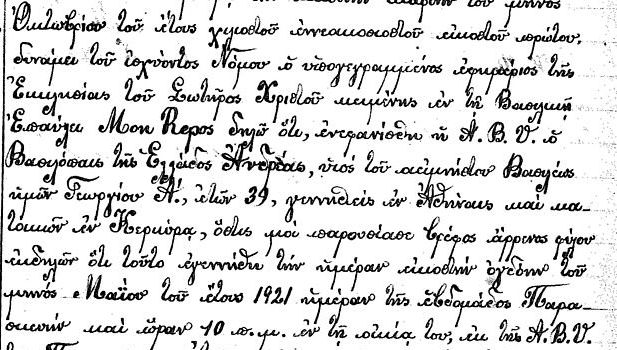 τοῦ μηνὸς
Ὀκτωβρίου τοῦ ἔτους χιλιοστοῦ ἐννεακοσιοστοῦ εἰκοστοῦ πρώτου,
δυνάμει τοῦ ἰσχύοντος Νόμου ὁ ὑπογεγραμμένος ἐφημέριος τῆς
Ἐκκλησίας τοῦ Σωτῆρος Χριστοῦ κειμένης ἐν τῇ Βασιλικῇ
Ἐπαύλει Mon Repos δηλῶ ὅτι, ἐνεφανίσθη ἡ Α. Β. Υ. ὁ
Βασιλόπαις τῆς Ἑλλάδος Ἀνδρέας, υἱὸς τοῦ ἀειμνήστου Βασιλέως
ἡμῶν Γεωργίου Α΄., ἐτῶν 39, γεννηθεὶς ἐν Ἀθήναις καὶ κα-
τοικῶν ἐν Κερκύρᾳ, ὅστις μοὶ παρουσίασε βρέφος ἄρρενος φύλου
ἐκδηλῶν ὅτι τοῦτο ἐγεννήθη τὴν ἡμέραν εἰκοστὴν ὀγδόην τοῦ
μηνὸς Μαΐου τοῦ ἔτους 1921 ἡμέραν τῆς ἑβδομάδος Παρα-
σκευὴν καὶ ὥραν 10 π. μ. ἐν τῇ οἰκίᾳ του, ἐκ τῆς Α. Β. Υ.